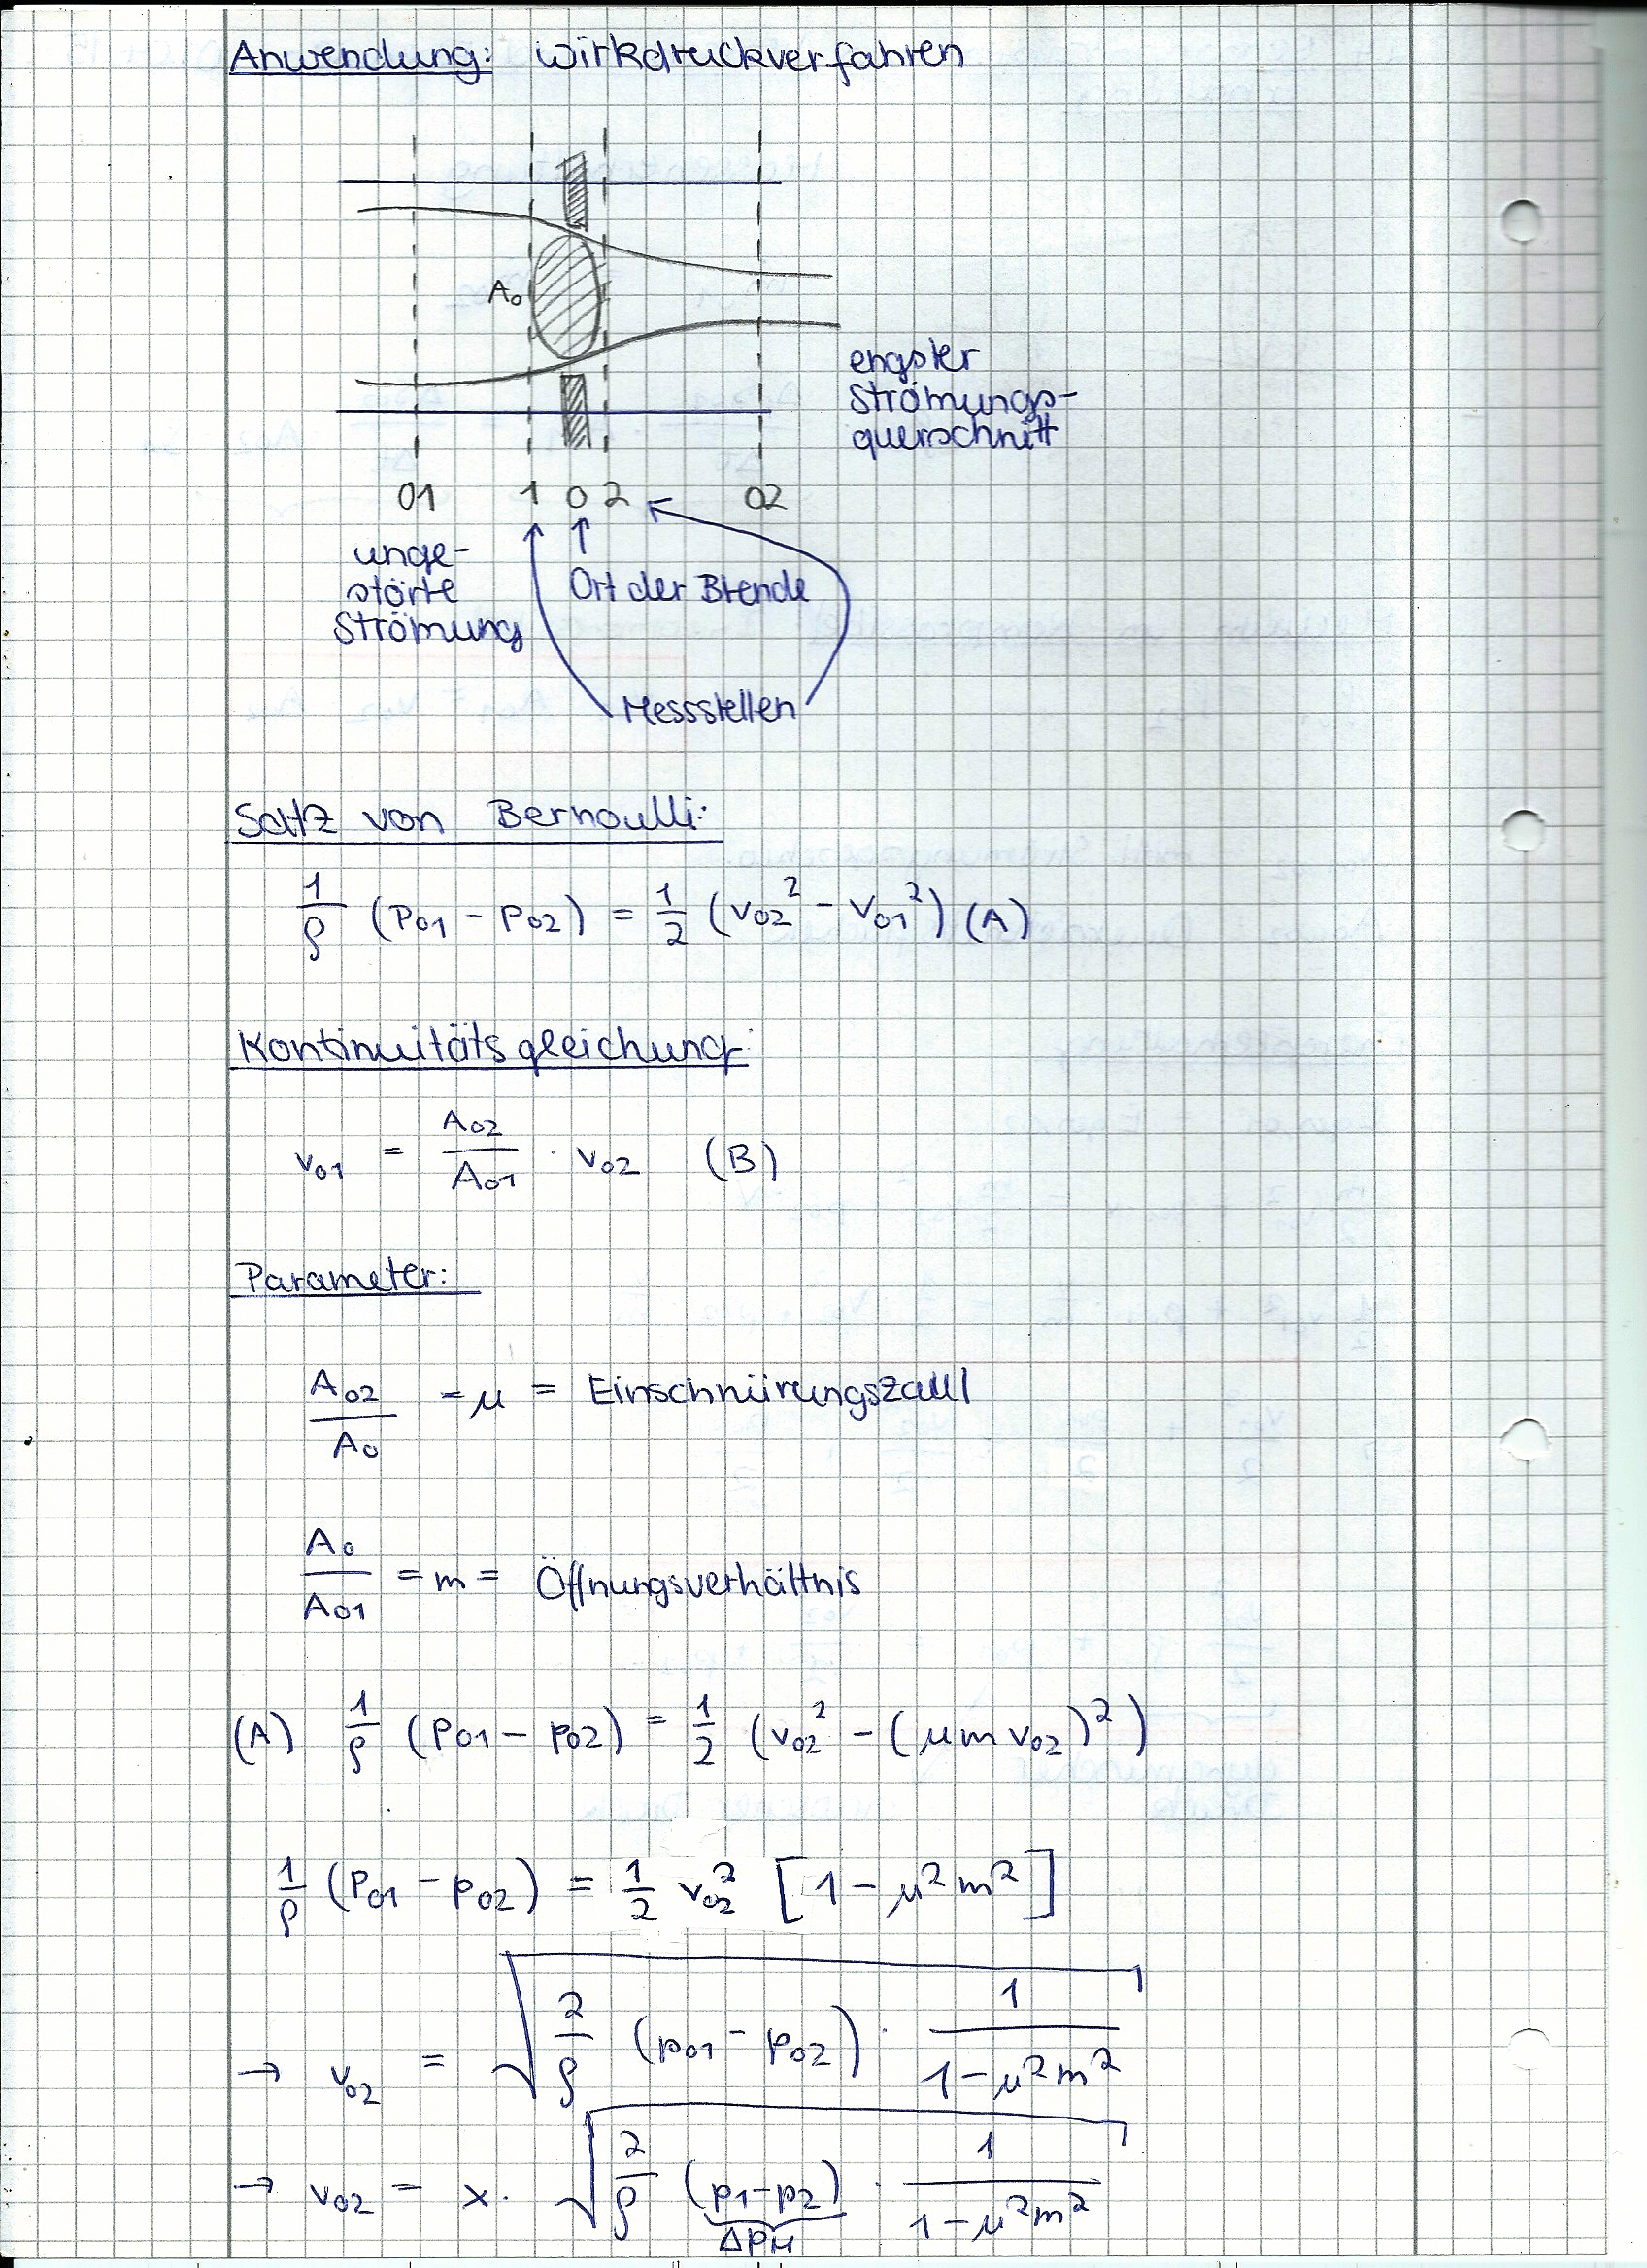 Anwendung: Wirkdruckverfahren
A₀
engster
Strömungs-
querschnitt
01 1 0 2 02
unge-
störte
Strömung
Ort der Blende
Messstellen
Satz von Bernoulli:
1/ρ (p₀₁ - p₀₂) = 1/2 (v₀₂² - v₀₁²) (A)
Kontinuitätsgleichung:
v₀₁ = A₀₂/A₀₁ · v₀₂ (B)
Parameter:
A₀₂/A₀ = μ = Einschnürungszahl
A₀/A₀₁ = m = Öffnungsverhältnis
(A) 1/ρ (p₀₁ - p₀₂) = 1/2 (v₀₂² - (μ m v₀₂)²)
1/ρ (p₀₁ - p₀₂) = 1/2 v₀₂² [1 - μ²m²]
→ v₀₂ = √(2/ρ (p₀₁ - p₀₂) · 1/(1 - μ²m²))
→ v₀₂ = x · √(2/ρ (p₁ - p₂) · 1/(1 - μ²m²))
ΔpM